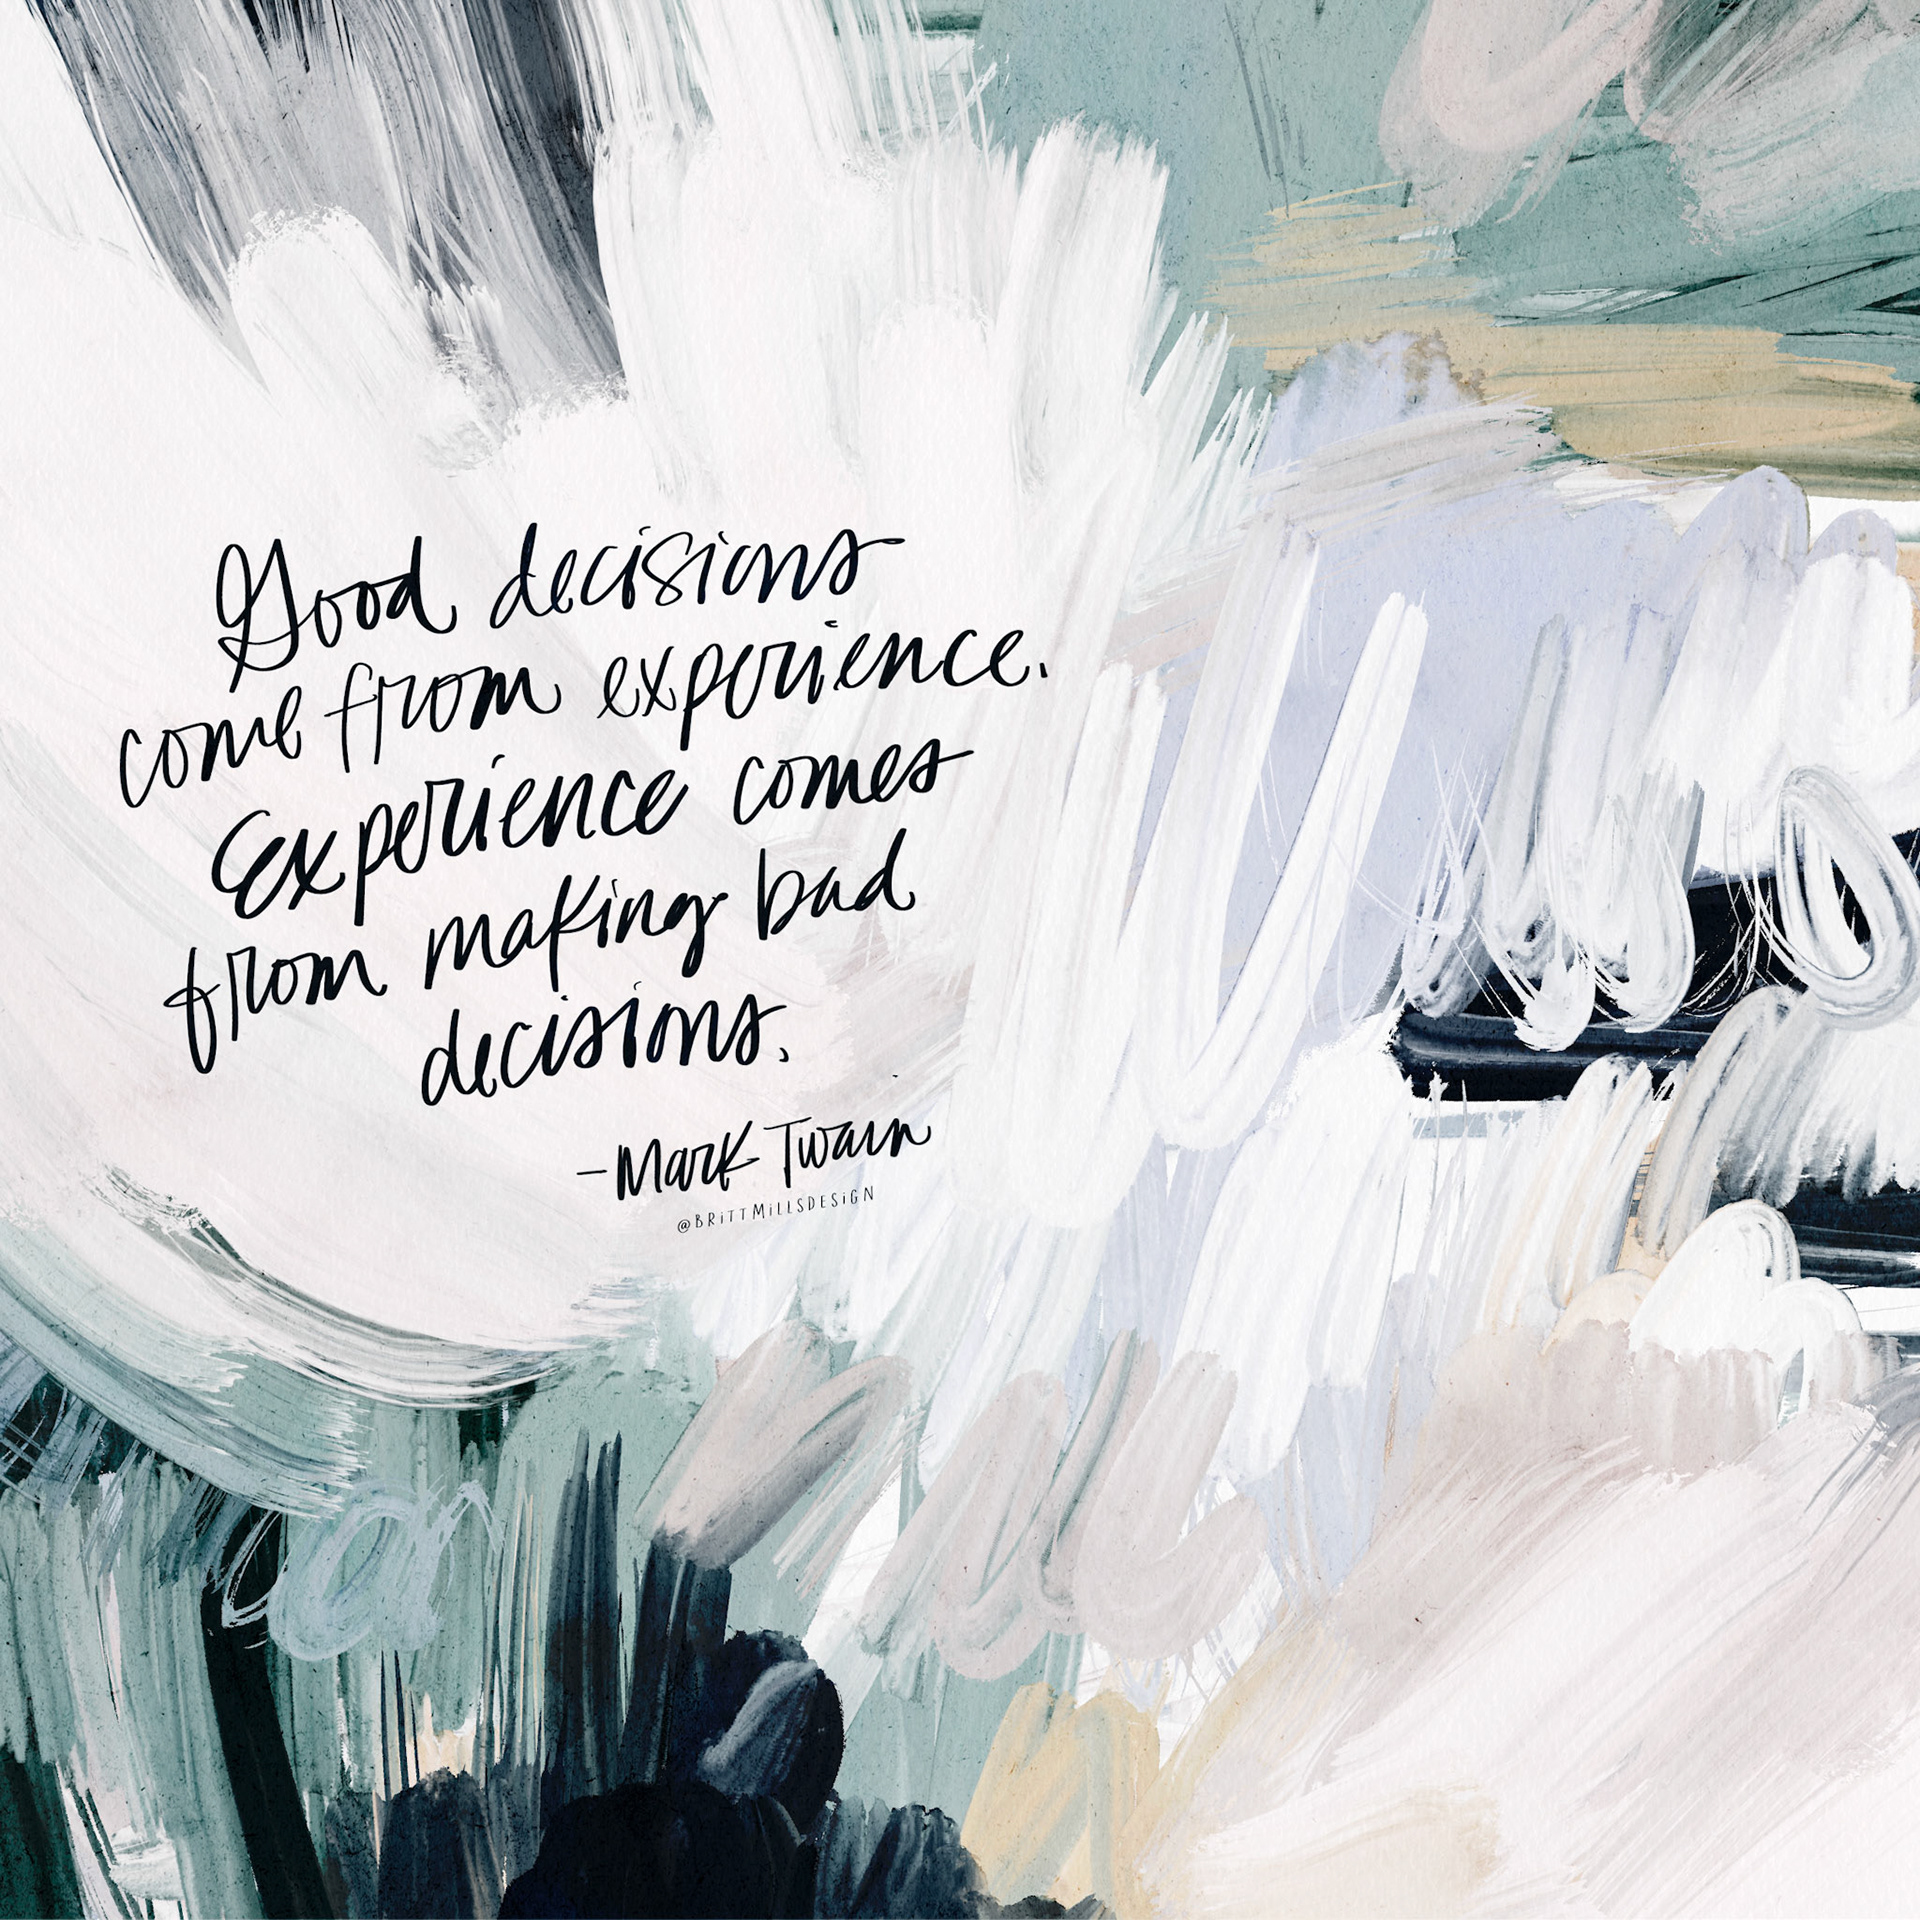 Good decisions
come from experience.
Experience comes
from making bad
decisions.
-Mark Twain
@BRiTTMiLLSDESiGN